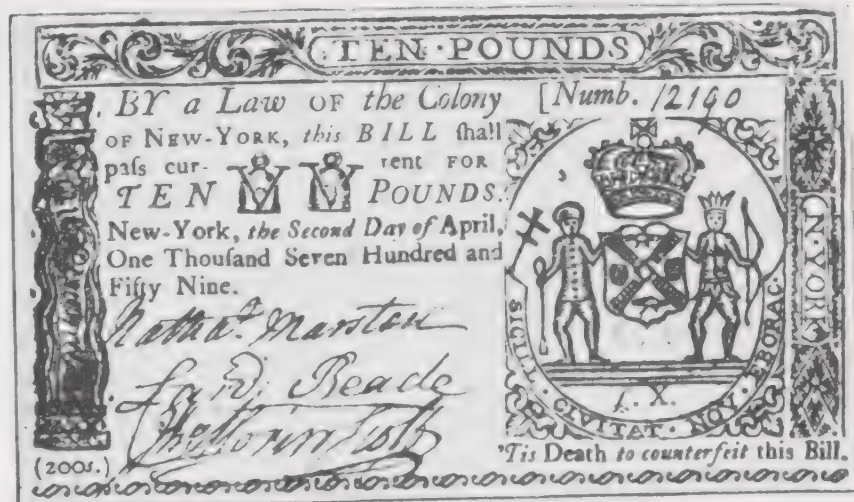 TEN·POUNDS
BY a Law OF the Colony
[Numb. 12190
OF NEW-YORK, this BILL ſhall
paſs cur- rent FOR
TEN POUNDS.
New-York, the Second Day of April,
One Thouſand Seven Hundred and
Fifty Nine.
Nathal. Marston
Reade
N·YORK
SIGILL CIVITAT. NOV. EBORAC.
(200s.)
'Tis Death to counterfeit this Bill.